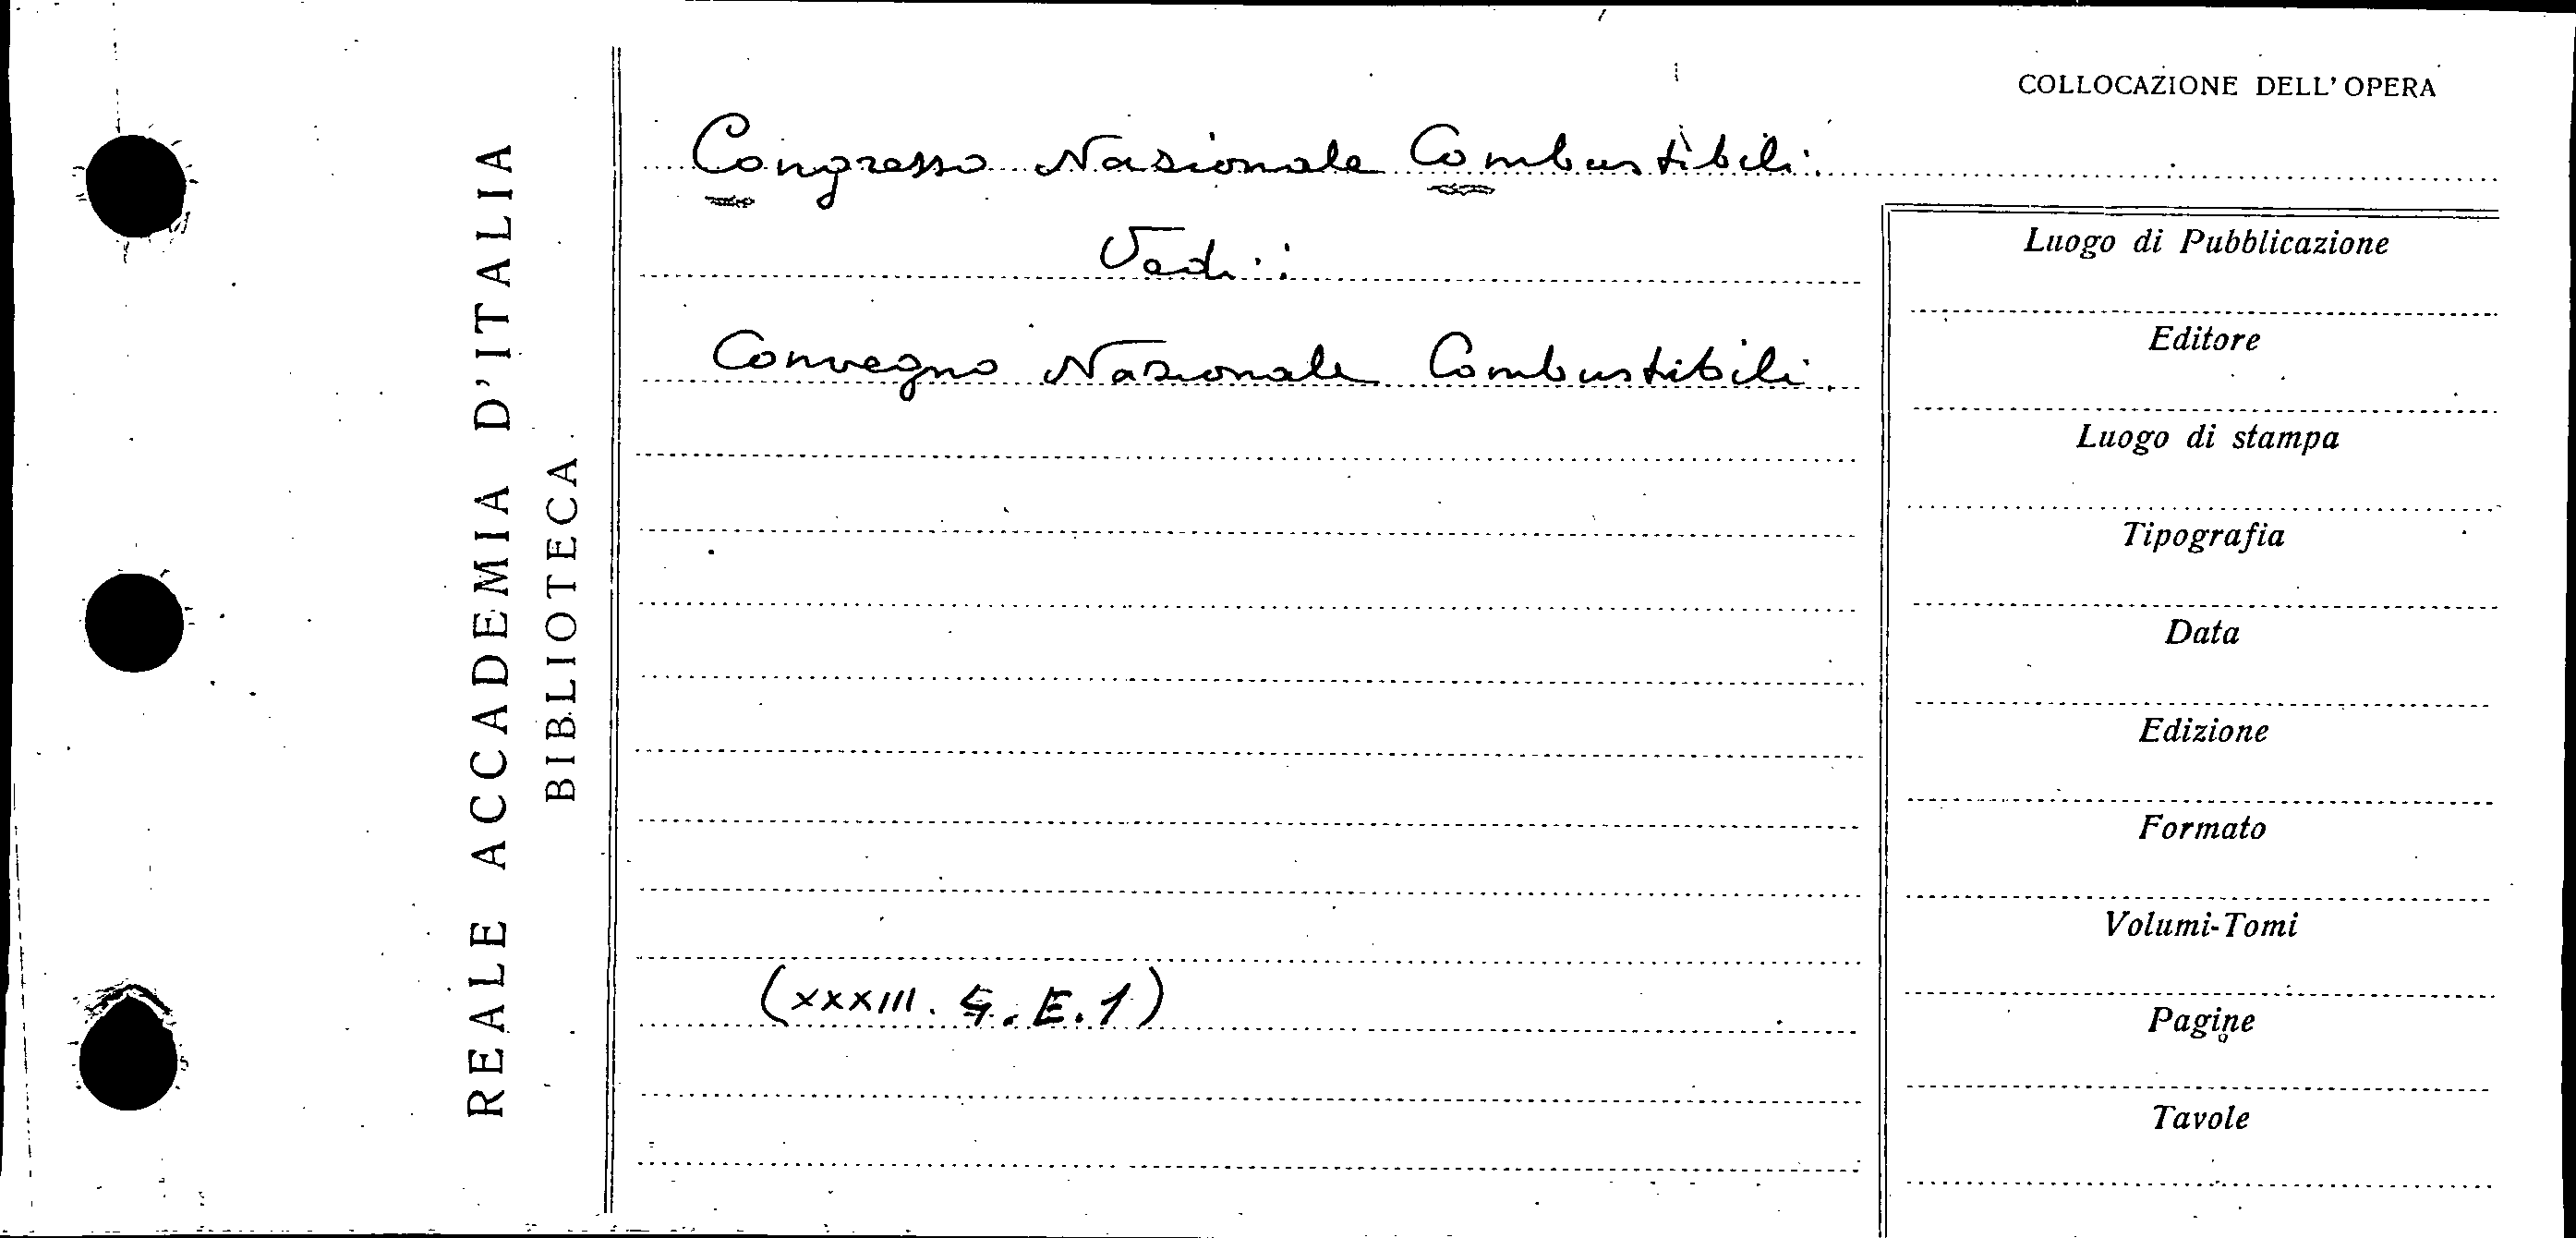 REALE ACCADEMIA D'ITALIA
BIBLIOTECA
COLLOCAZIONE DELL'OPERA
Congresso Nazionale Combustibili.
Vedi:
Convegno Nazionale Combustibili.
(XXXIII. G. E. 1)
Luogo di Pubblicazione
Editore
Luogo di stampa
Tipografia
Data
Edizione
Formato
Volumi-Tomi
Pagine
Tavole